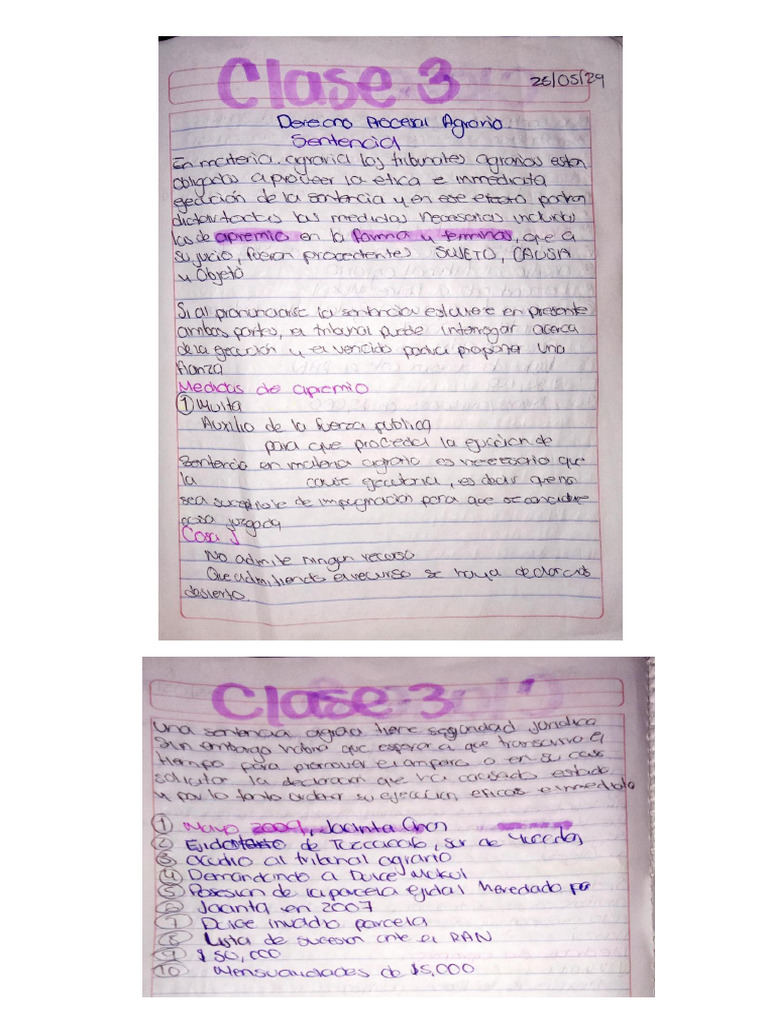 Clase 3
26/05/29
Derecho Procesal Agrario
Sentencia
En materia agraria los tribunales agrarios estan
obligados a proveer la etica e inmediata
ejecución de la sentencia y en ese efecto podran
dictar todas las medidas necesarias incluidas
las de apremio en la forma y terminos, que a
su juicio, fueran procedentes SUJETO, CAUSA
y Objeto
Si al pronunciarse la sentencia estuviere en presente
ambas partes, el tribunal puede interrogar acerca
de la ejecución y el vencido podra proponer una
fianza
Medidas de apremio
① Multa
Auxilio de la fuerza publica
para que proceda la ejecucion de
sentencia en materia agraria es necesario que
la cause ejecutoria, es decir que no
sea suceptible de impugnacion para que se considere
cosa juzgada
Cosa J
No admite ningun recurso
Que admitiendo el recurso se haya declarado
desierto.
Clase 3
Una sentencia agraria tiene seguridad juridica
sin embargo habra que esperar a que transcurra el
tiempo para promover el amparo o en su caso
solicitar la declaracion que ha causado estado
y por lo tanto ordenar su ejecucion eficas e inmediata
① Mayo 2009, Jacinta Chan
② Ejido de , sur de Yucatan
③ acudio al tribunal agrario
④ Demandando a Dulce Mukul
⑤ Posesion de la parcela ejidal heredado por
⑥ Jacinta en 2007
⑦ Dulce invadio parcela
⑧ Lista de sucesion ante el RAN
⑨ $50,000
⑩ Mensualidades de $5,000